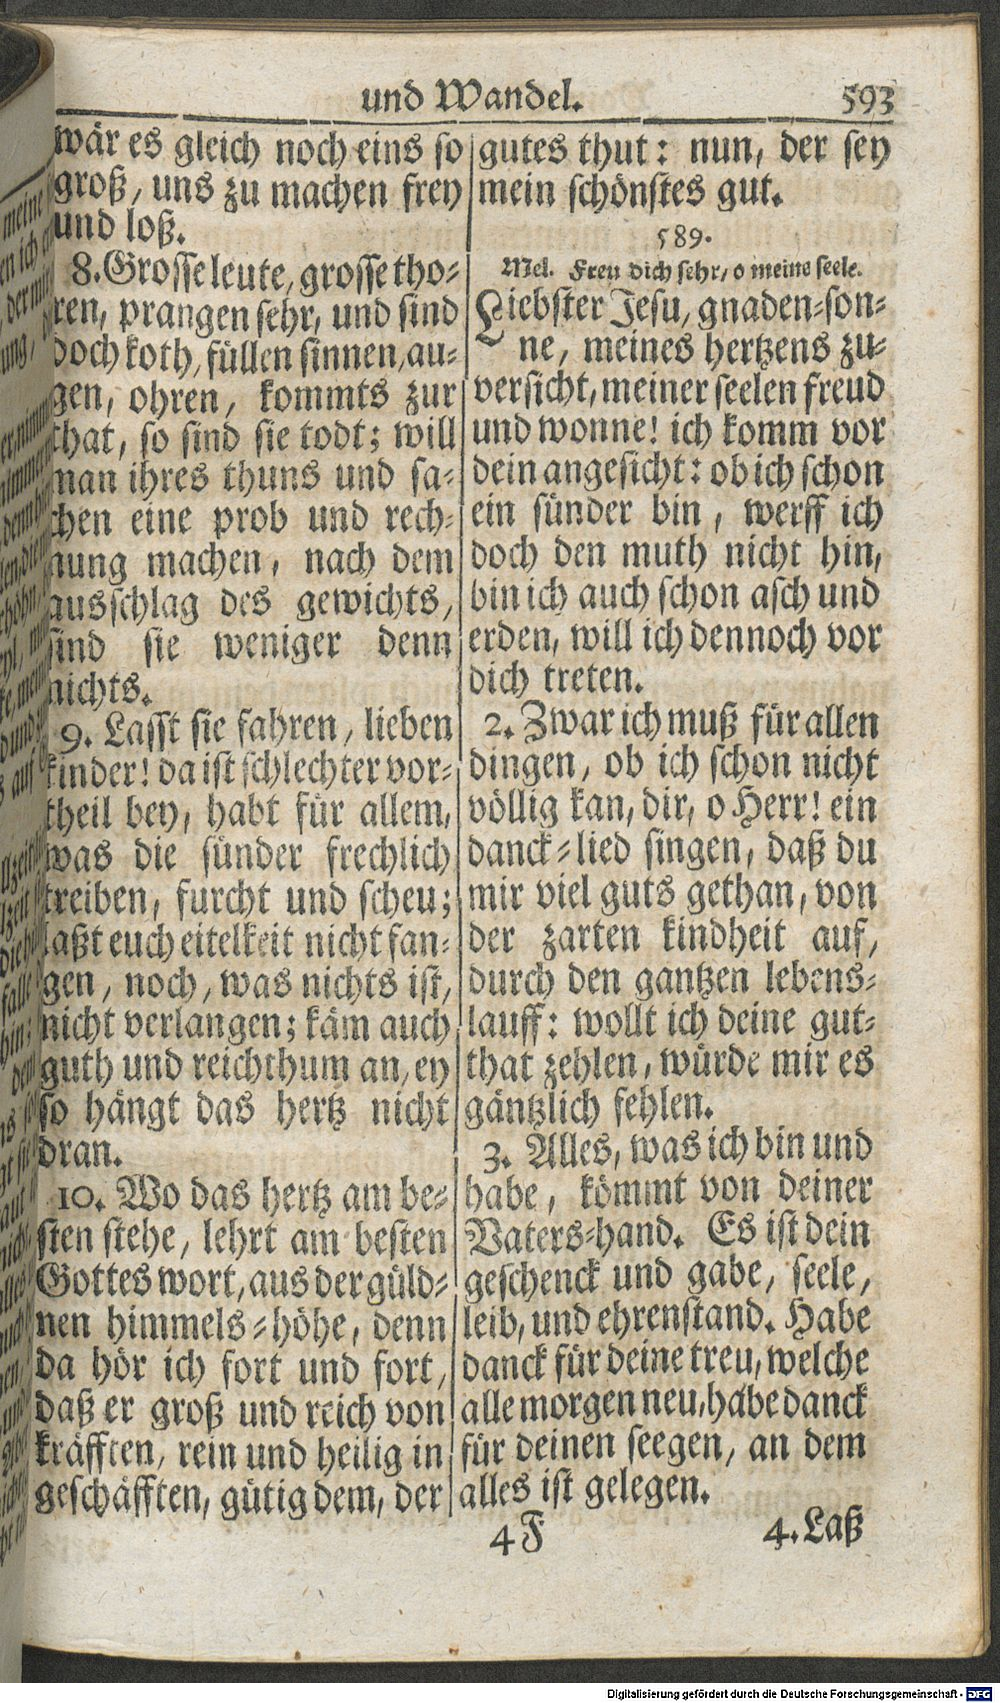 und Wandel. 593
wär es gleich noch eins so
groß, uns zu machen frey
und loß.
8. Grosse leute, grosse tho-
ren, prangen sehr, und sind
doch koth, füllen sinnen, au-
gen, ohren, kommts zur
that, so sind sie todt; will
man ihres thuns und sa-
chen eine prob und rech-
nung machen, nach dem
ausschlag des gewichts,
sind sie weniger denn
nichts.
9. Lasst sie fahren, lieben
kinder! da ist schlechter vor-
theil bey, habt für allem,
was die sünder frechlich
treiben, furcht und scheu;
laßt euch eitelkeit nicht fan-
gen, noch, was nichts ist,
nicht verlangen; käm auch
guth und reichthum an, ey
so hängt das hertz nicht
dran.
10. Wo das hertz am be-
sten stehe, lehrt am besten
Gottes wort, aus der güld-
nen himmels-höhe, denn
da hör ich fort und fort,
daß er groß und reich von
kräfften, rein und heilig in
geschäfften, gütig dem, der
gutes thut: nun, der sey
mein schönstes gut.
589.
Mel. Freu dich sehr, o meine seele.
Liebster Jesu, gnaden-son-
ne, meines hertzens zu-
versicht, meiner seelen freud
und wonne! ich komm vor
dein angesicht: ob ich schon
ein sünder bin, werff ich
doch den muth nicht hin,
bin ich auch schon asch und
erden, will ich dennoch vor
dich treten.
2. Zwar ich muß für allen
dingen, ob ich schon nicht
völlig kan, dir, o Herr! ein
danck-lied singen, daß du
mir viel guts gethan, von
der zarten kindheit auf,
durch den gantzen lebens-
lauff: wollt ich deine gut-
that zehlen, würde mir es
gäntzlich fehlen.
3. Alles, was ich bin und
habe, kömmt von deiner
Vaters-hand. Es ist dein
geschenck und gabe, seele,
leib, und ehrenstand. Habe
danck für deine treu, welche
alle morgen neu, habe danck
für deinen seegen, an dem
alles ist gelegen.
4 F 4. Laß
Digitalisierung gefördert durch die Deutsche Forschungsgemeinschaft - DFG